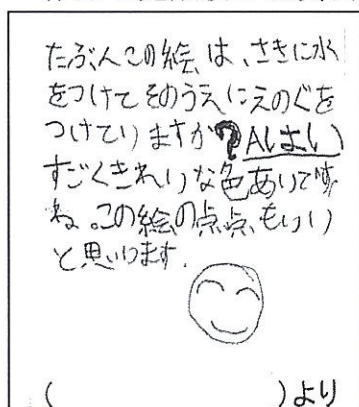 たぶんこの絵は、さきに水
をつけてそのうえにえのぐを
つけていますか?
すごくきれいな色あいです
ね。この絵の点点もいい
と思います。
( )より